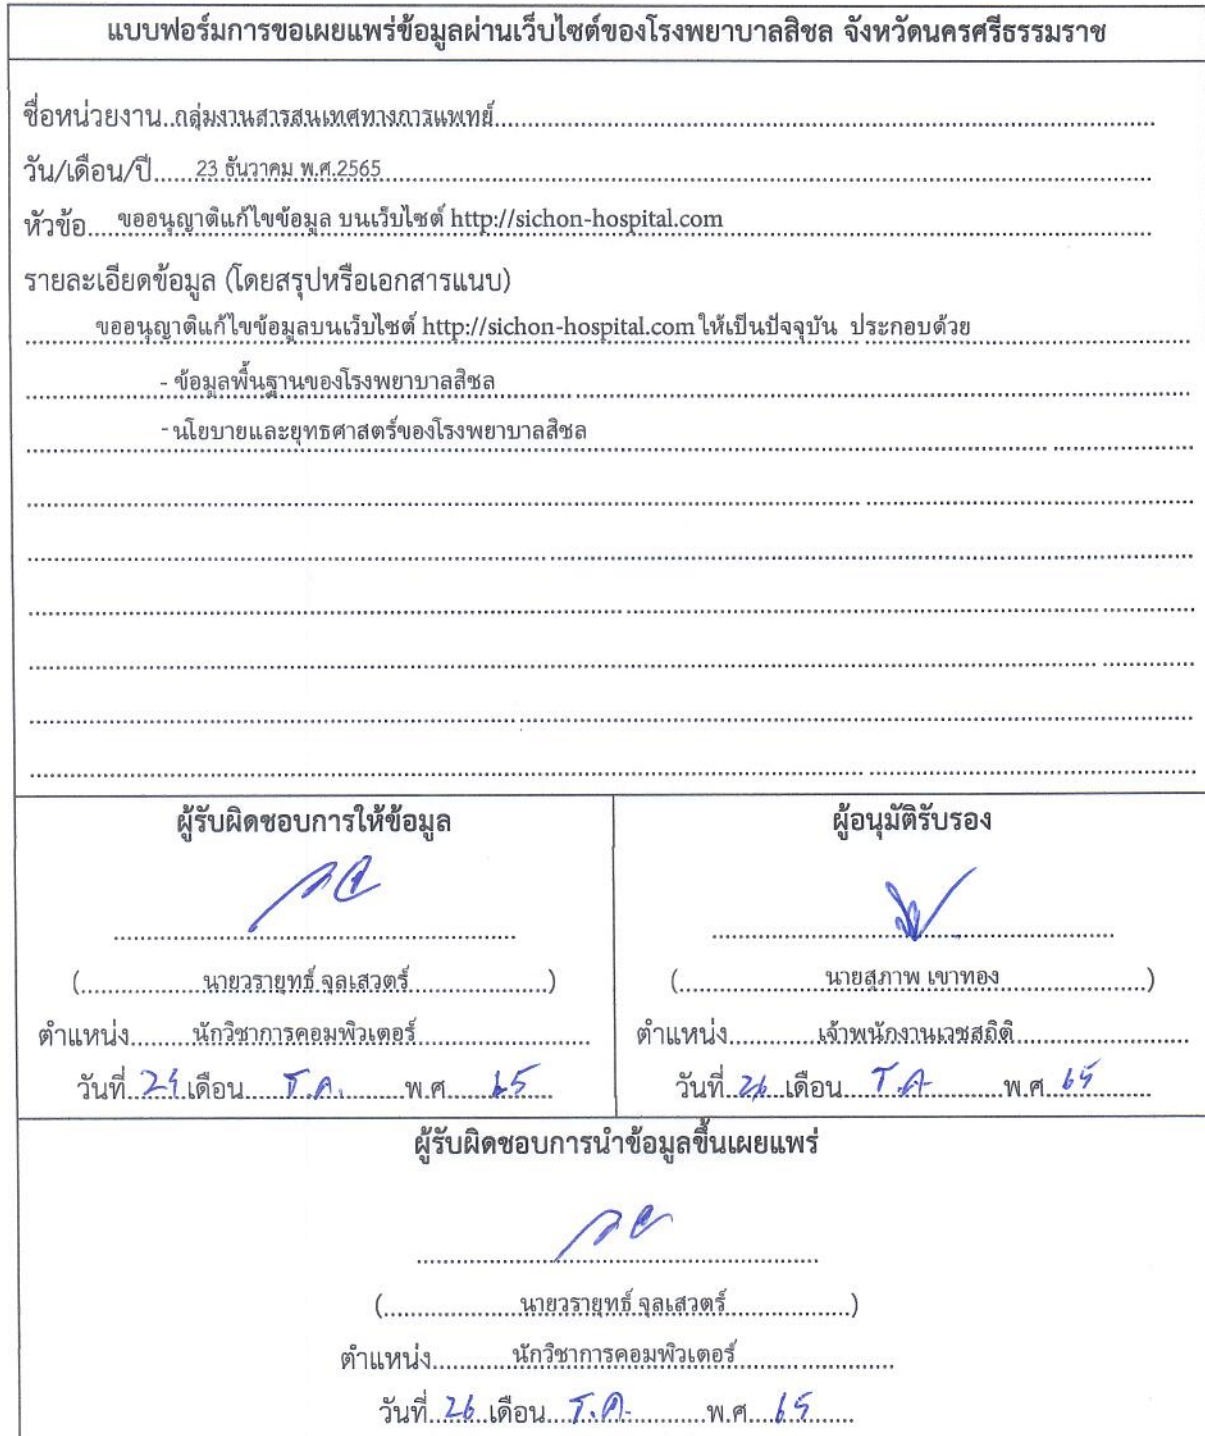 แบบฟอร์มการขอเผยแพร่ข้อมูลผ่านเว็บไซต์ของโรงพยาบาลสิชล จังหวัดนครศรีธรรมราช
ชื่อหน่วยงาน..กลุ่มงานสารสนเทศทางการแพทย์
วัน/เดือน/ปี......23 ธันวาคม พ.ศ.2565
หัวข้อ.....ขออนุญาติแก้ไขข้อมูล บนเว็บไซต์ http://sichon-hospital.com
รายละเอียดข้อมูล (โดยสรุปหรือเอกสารแนบ)
ขออนุญาติแก้ไขข้อมูลบนเว็บไซต์ http://sichon-hospital.com ให้เป็นปัจจุบัน ประกอบด้วย
- ข้อมูลพื้นฐานของโรงพยาบาลสิชล
- นโยบายและยุทธศาสตร์ของโรงพยาบาลสิชล
ผู้รับผิดชอบการให้ข้อมูล
(นายวรายุทธ์ จุลเสวตร์)
ตำแหน่ง.........นักวิชาการคอมพิวเตอร์
วันที่ เดือน ธ.ค. พ.ศ. 65
ผู้อนุมัติรับรอง
(นายสุภาพ เขาทอง)
ตำแหน่ง.............เจ้าพนักงานเวชสถิติ
วันที่ 26 เดือน ธ.ค. พ.ศ. 65
ผู้รับผิดชอบการนำข้อมูลขึ้นเผยแพร่
(นายวรายุทธ์ จุลเสวตร์)
ตำแหน่ง............นักวิชาการคอมพิวเตอร์
วันที่ 26 เดือน ธ.ค. พ.ศ. 65